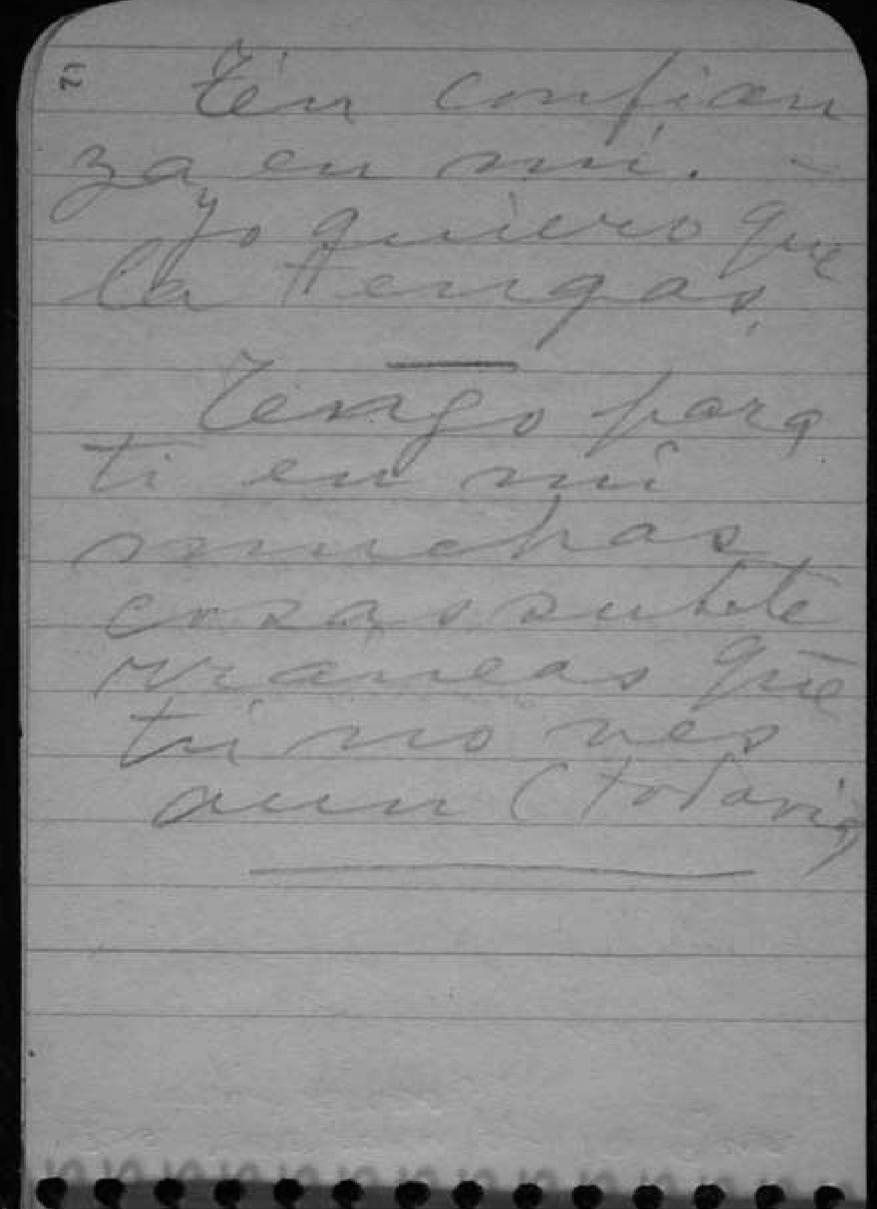 Ten confian
za en mí. -
yo quiero que
la tengas.
Tengo para
ti en mí
muchas
cosas subte
rráneas que
tú no ves
aun (todavia)